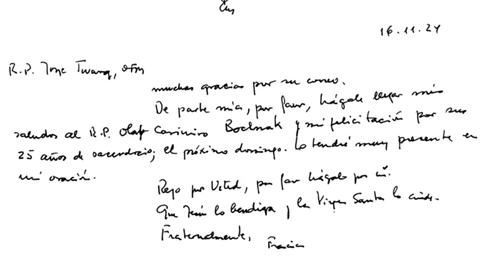 16.11.24
R.P. Jose Twarog, ofm
muchas gracias por su correo.
De parte mía, por favor, hágale llegar mis
saludos al R.P. Olaf Casimiro Bochnak y mi felicitación por sus
25 años de sacerdocio, el próximo domingo. Lo tendré muy presente en
mi oración.
Rezo por Usted, por favor hágalo por mí.
Que Jesús lo bendiga y la Virgen Santa lo cuide.
Fraternalmente,